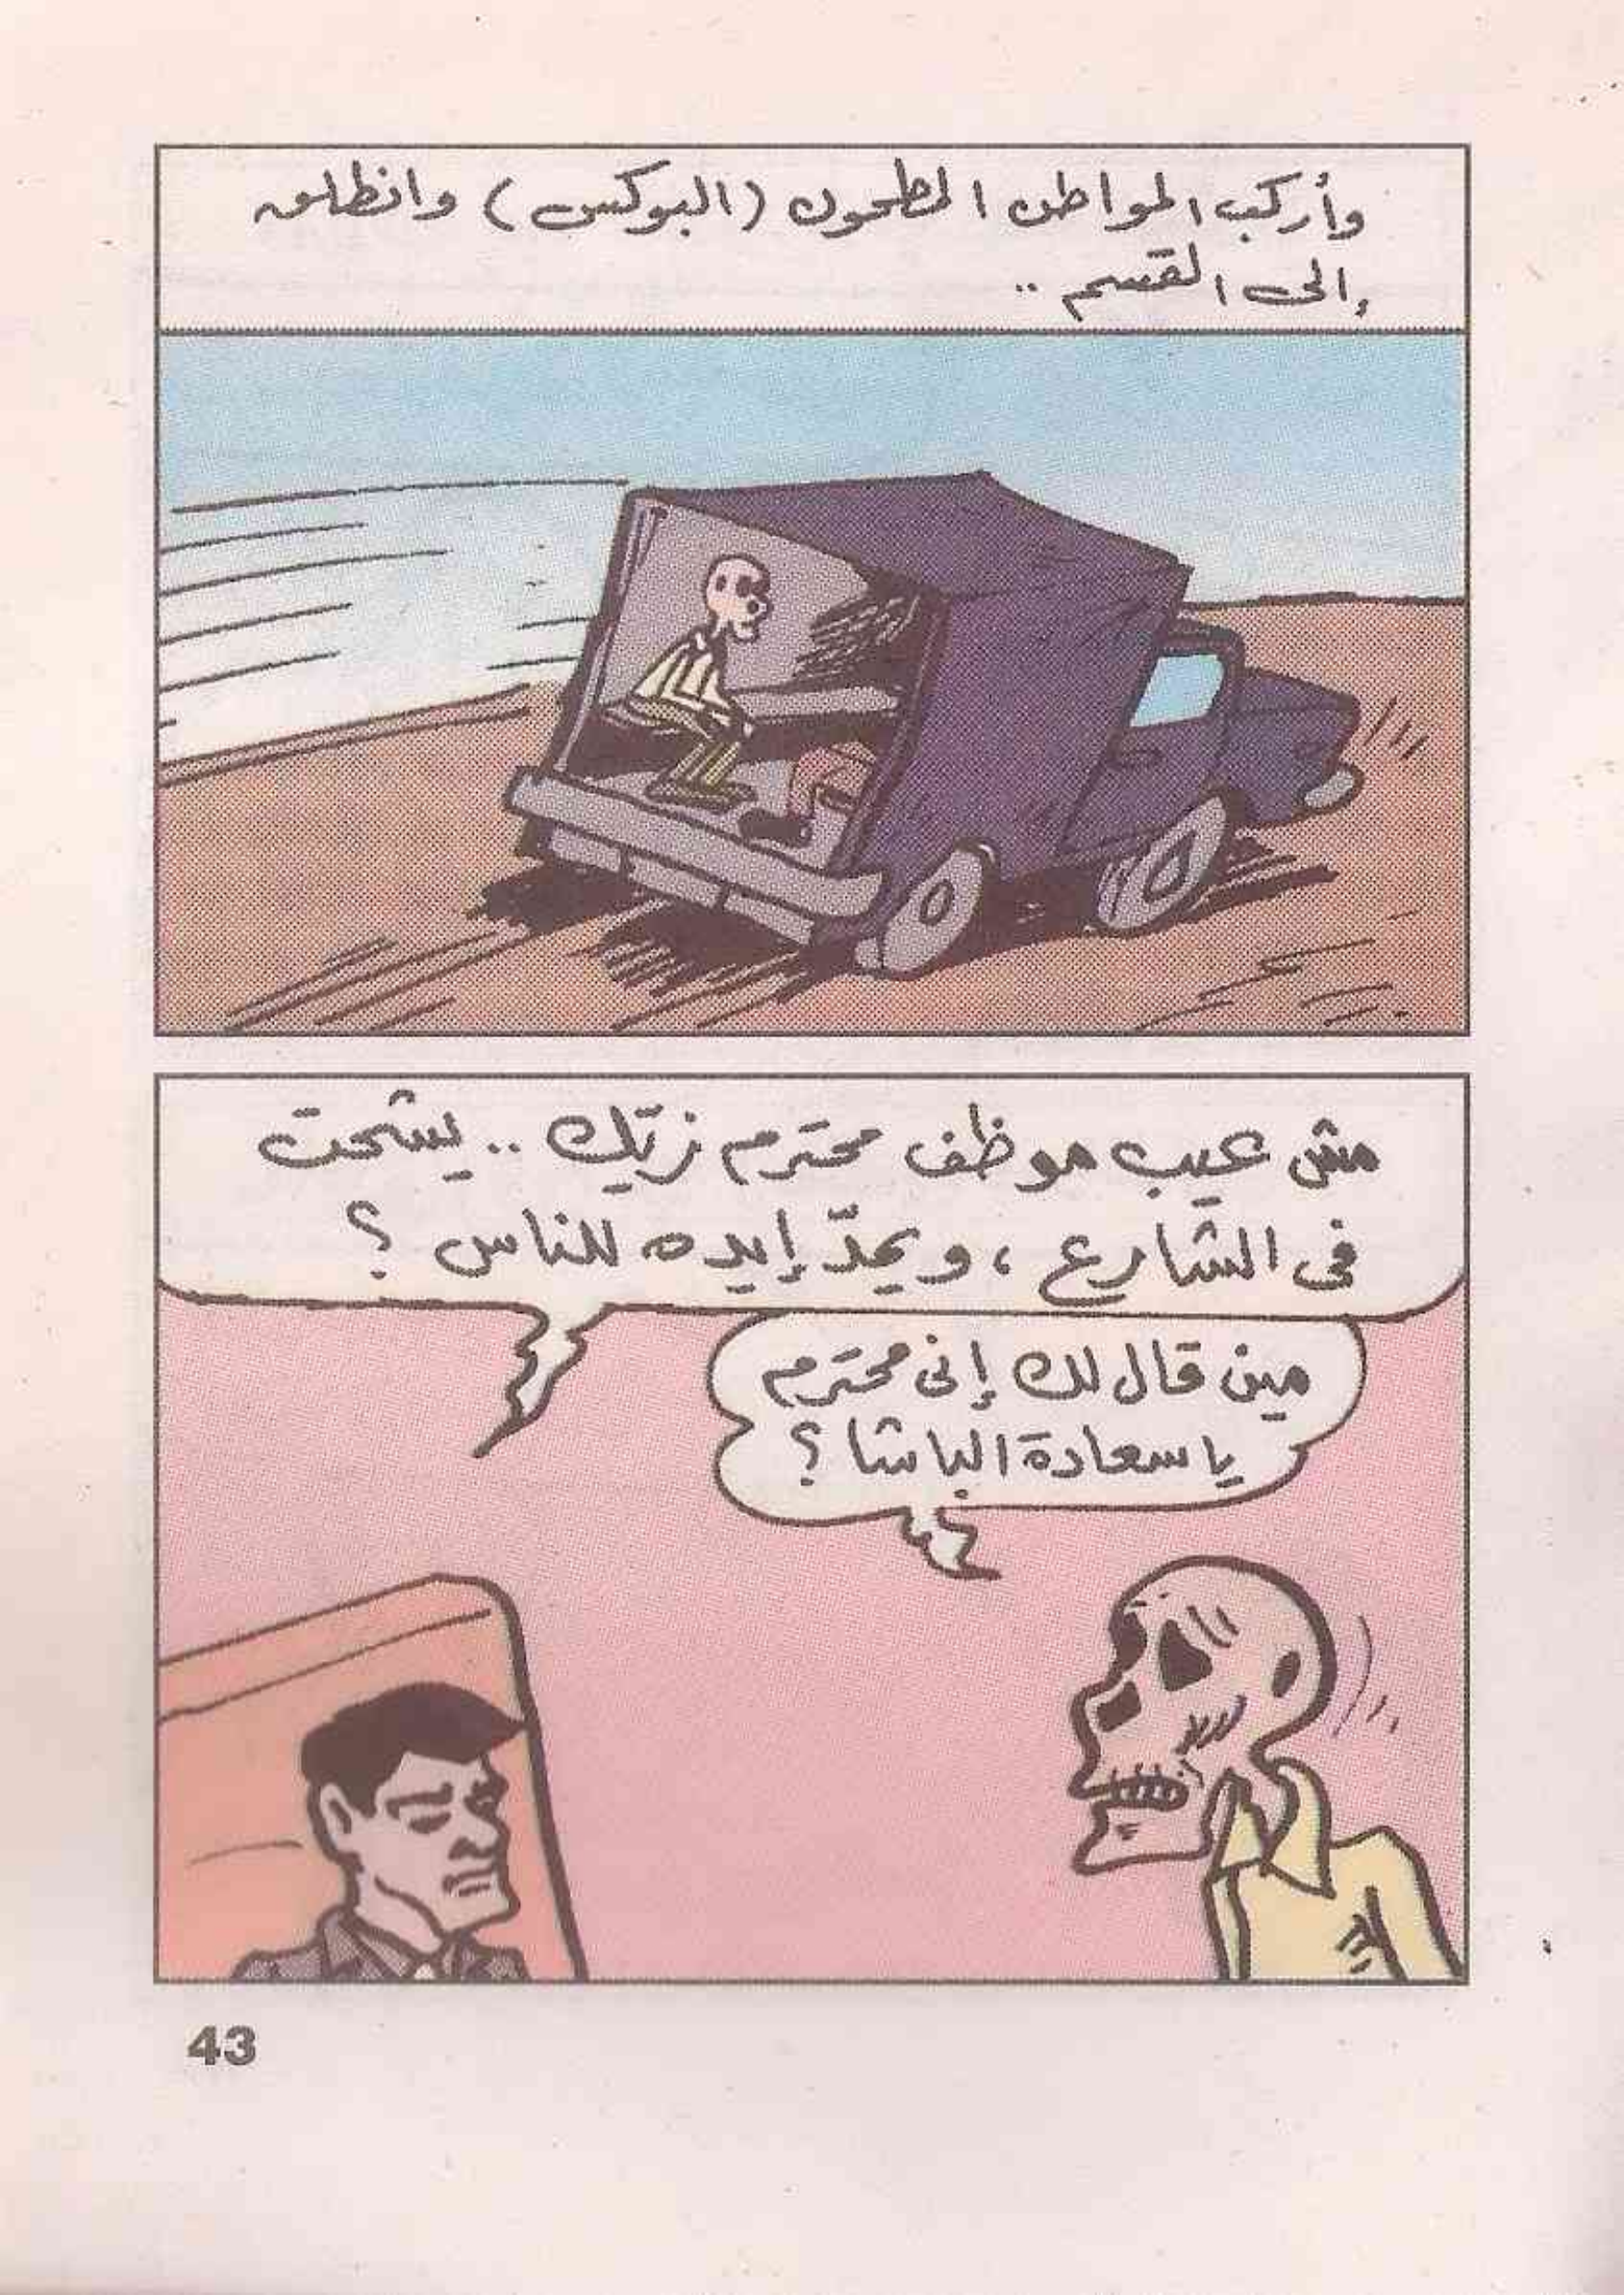 وأركب المواطن المطحون (البوكس) وانطلق
إلى القسم ..
مش عيب موظف محترم زيّك .. يشحت
فى الشارع ، ويمدّ إيده للناس ؟
مين قال لك إنى محترم
يا سعادة الباشا ؟
43